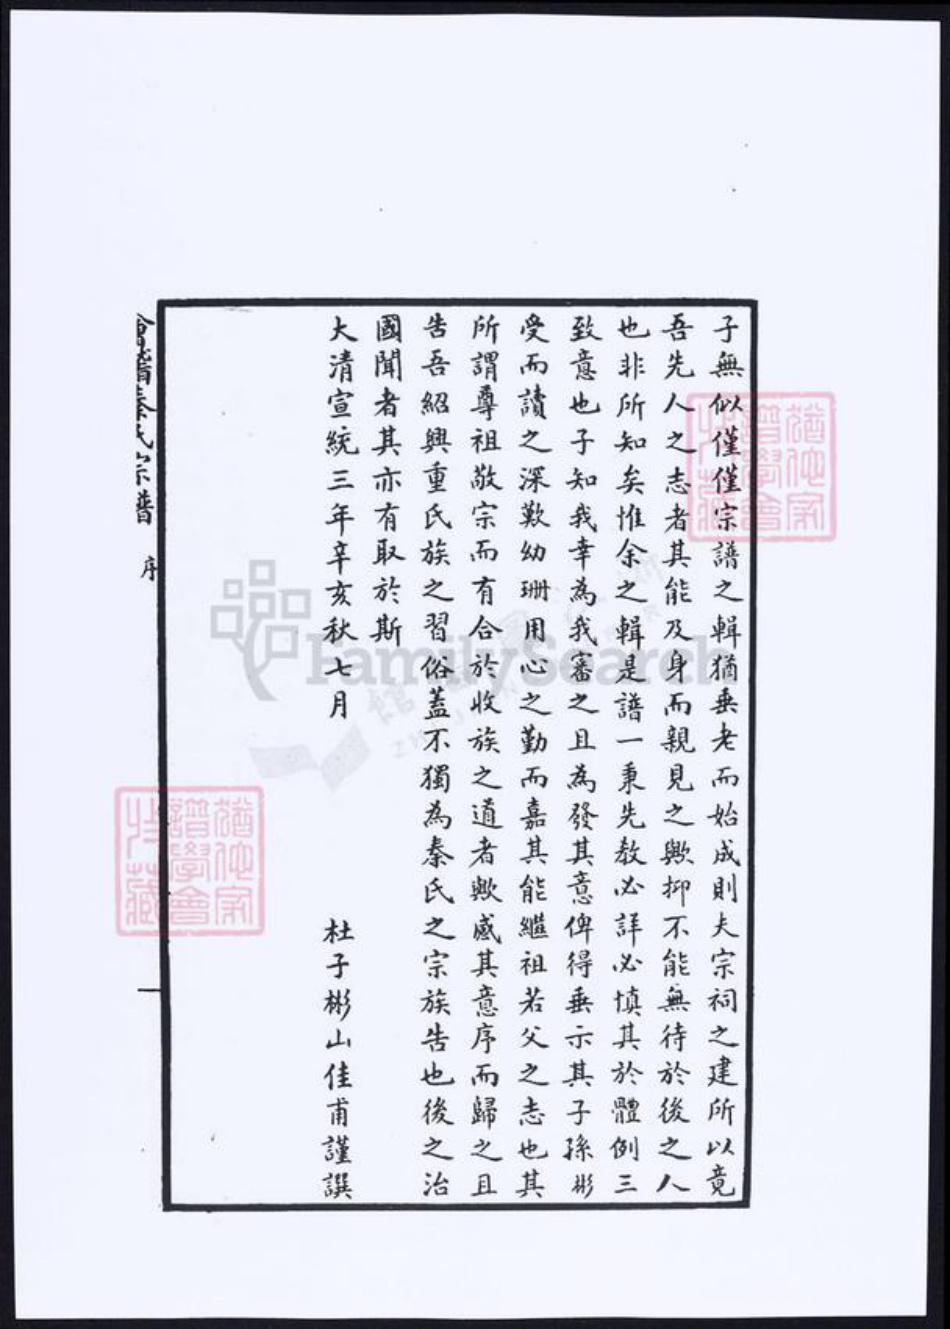 子無似僅僅宗譜之輯猶垂老而始成則夫宗祠之建所以竟
吾先人之志者其能及身而親見之歟抑不能無待於後之人
也非所知矣惟余之輯是譜一秉先教必詳必慎其於體例三
致意也子知我幸為我審之且為發其意俾得垂示其子孫彬
受而讀之深歎幼珊用心之勤而嘉其能繼祖若父之志也其
所謂尊祖敬宗而有合於收族之道者歟感其意序而歸之且
告吾紹興重氏族之習俗蓋不獨為秦氏之宗族告也後之治
國聞者其亦有取於斯
大清宣統三年辛亥秋七月 杜子彬山佳甫謹譔
會稽秦氏宗譜 序 一
譜學會
FamilySearch